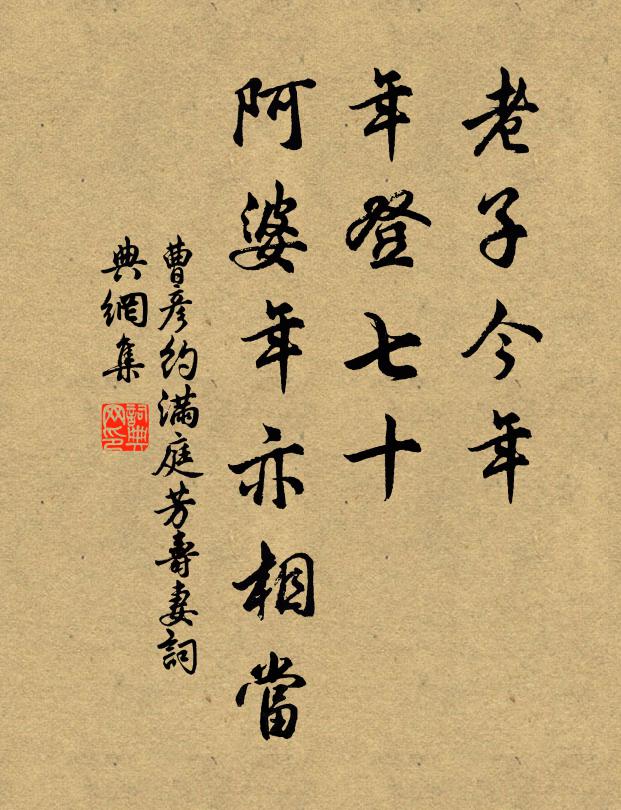 老子今年
年登七十
阿婆年亦相當
曹彥約滿庭芳壽妻詞
典網集
詞典
网印